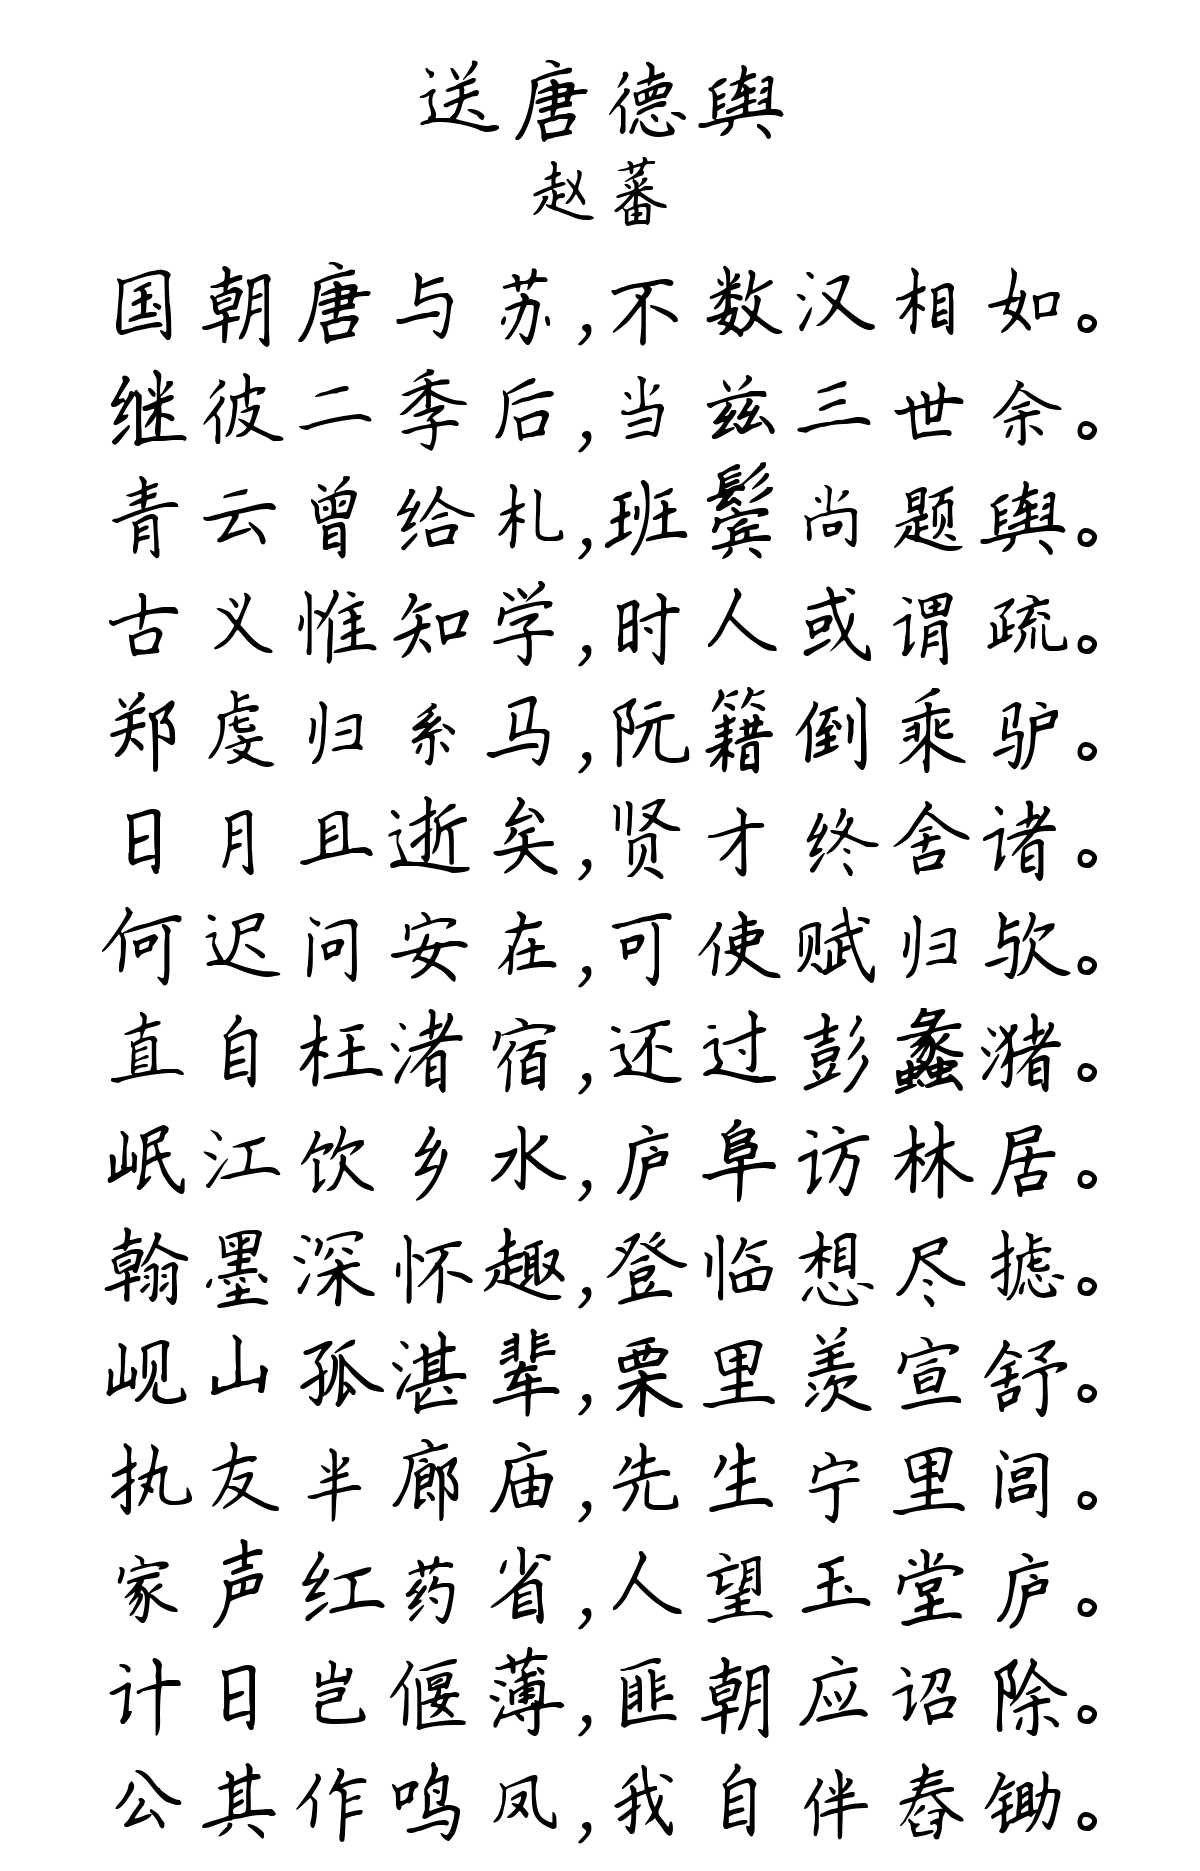 送唐德舆
赵蕃
国朝唐与苏,不数汉相如。
继彼二季后,当兹三世余。
青云曾给札,班鬓尚题舆。
古义惟知学,时人或谓疏。
郑虔归系马,阮籍倒乘驴。
日月且逝矣,贤才终舍诸。
何迟问安在,可使赋归欤。
直自枉渚宿,还过彭蠡潴。
岷江饮乡水,庐阜访林居。
翰墨深怀趣,登临想尽摅。
岘山孤湛辈,栗里羡宣舒。
执友半廊庙,先生宁里闾。
家声红药省,人望玉堂庐。
计日岂偃薄,匪朝应诏除。
公其作鸣凤,我自伴舂锄。